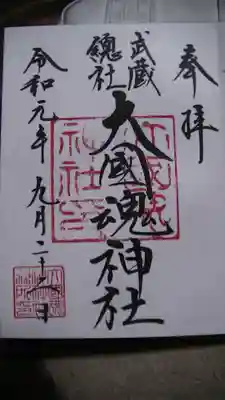 奉拝
武蔵
總社
大國魂神社
令和元年九月二十六日